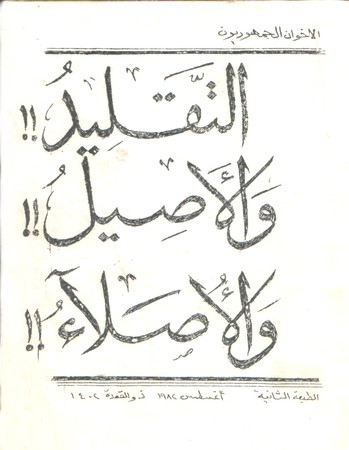 الاخوان الجمهوريون
التَّقـليدُ !!
وَالأَصِيلُ !!
وَالأُصَلآءُ !!
الطبعة الثانية أغسطس ١٩٨٢ ذو القعدة ١٤٠٢